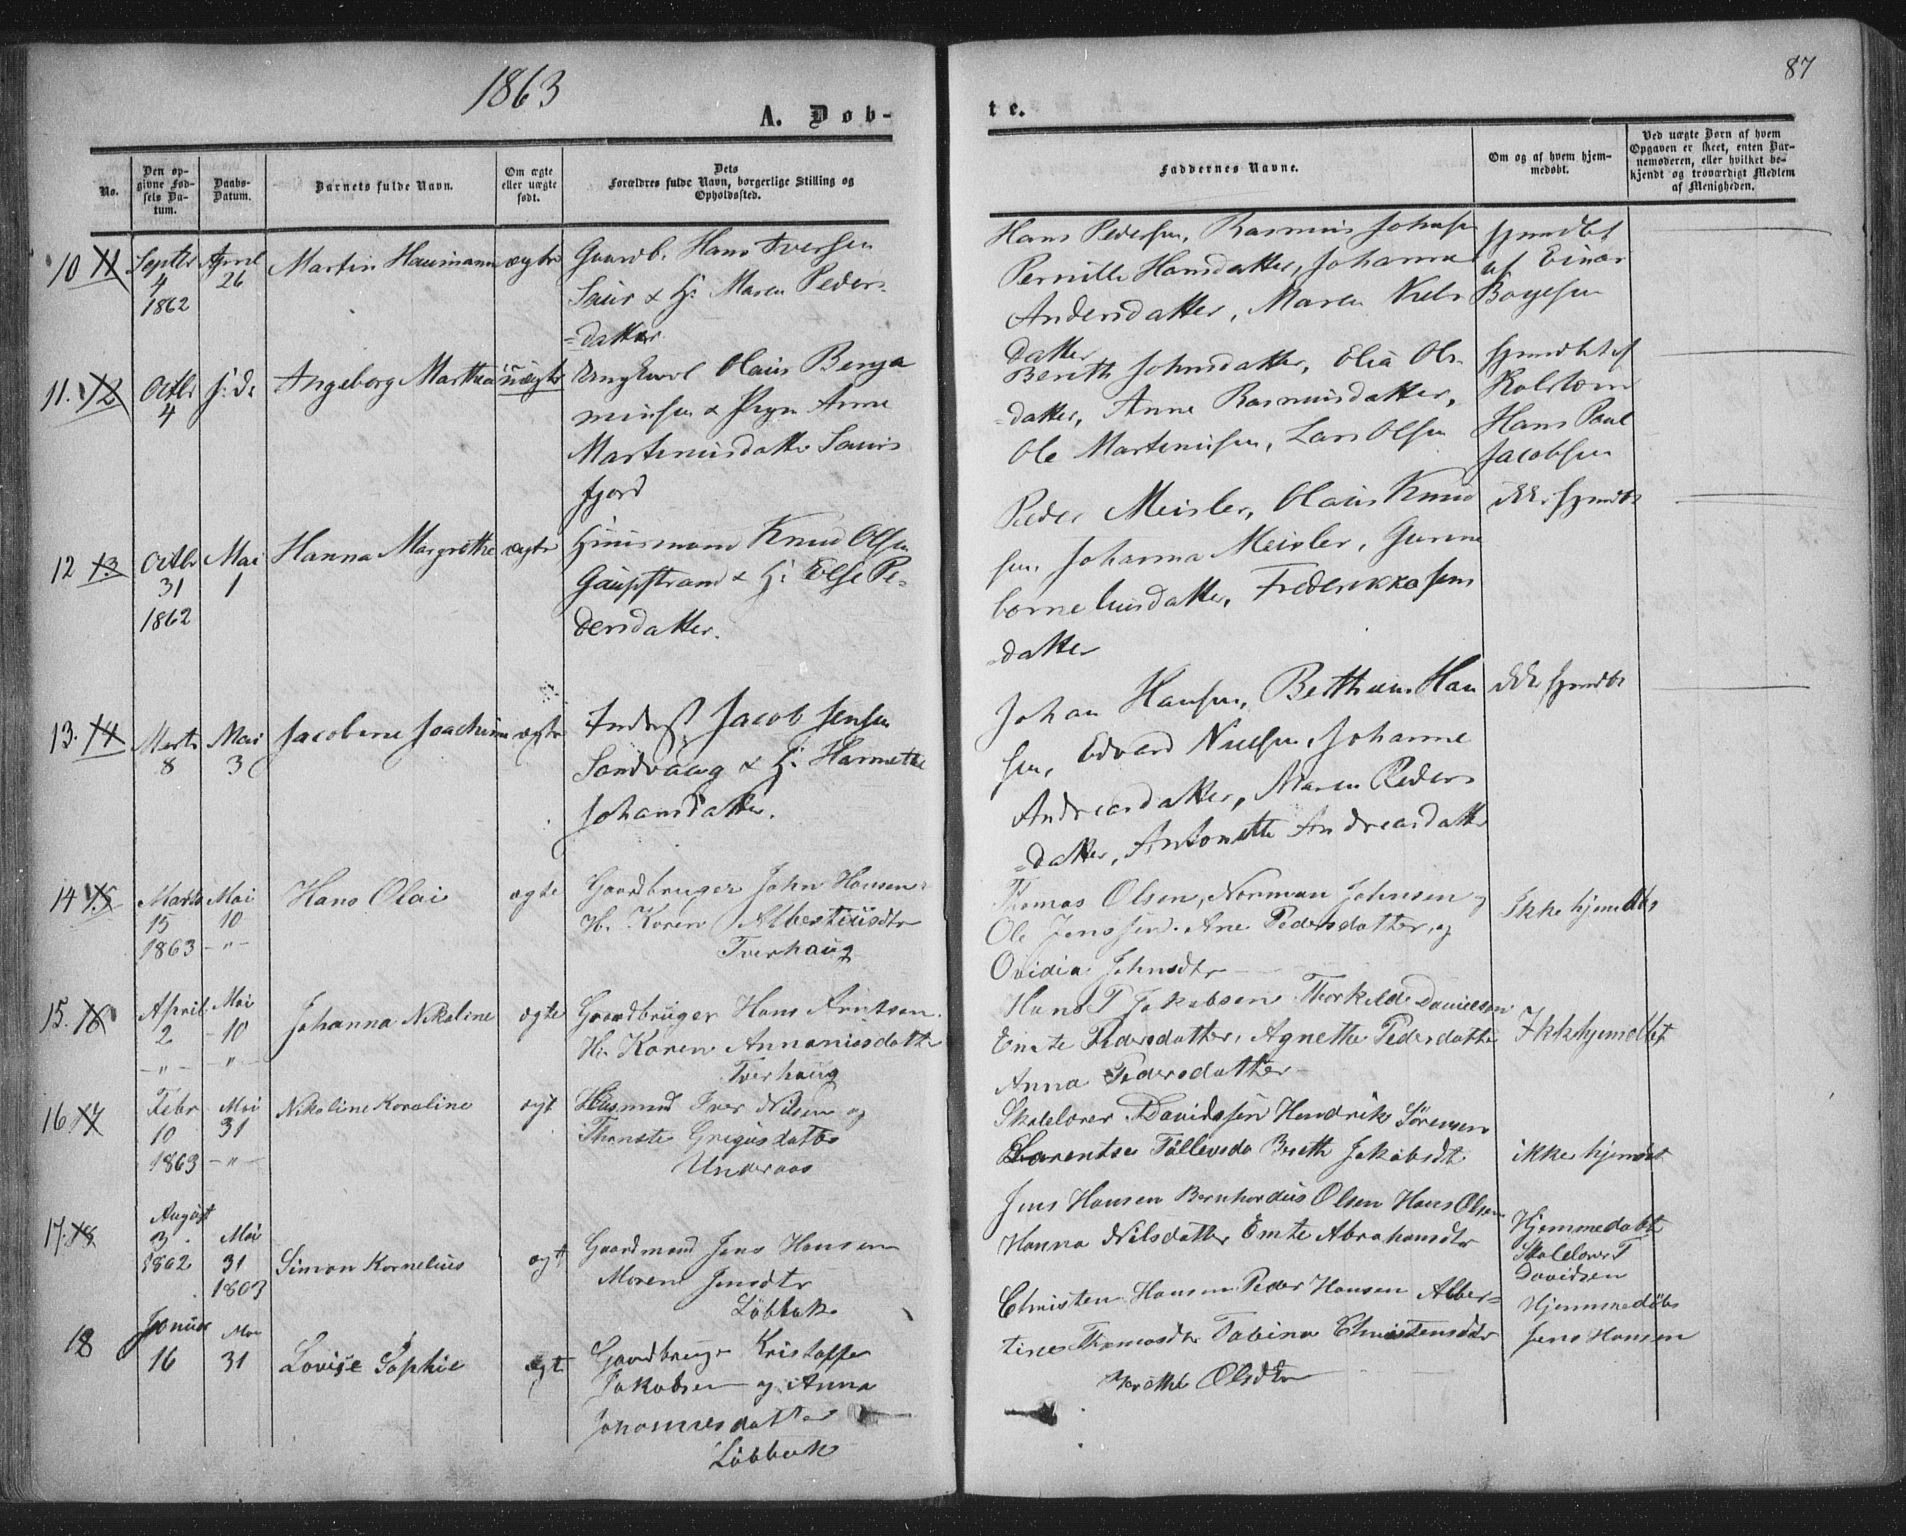 1863
87
A. Døb-
te.
No.
Den op-
givne Fød-
sels Da-
tum.
Daabs-
Datum.
Barnets fulde Navn.
Om ægte
eller uægte
født.
Dets
Forældres fulde Navn, borgerlige Stilling og
Opholdssted.
Faddernes Navne.
Om og af hvem hjem-
medøbt.
Ved uægte Børn af hvem
Opgaven er skeet, enten Bar-
nemoderen, eller hvilket be-
kjendt og troværdigt Medlem
af Menigheden.
10 11 Septbr
4
1862
April
26
Martin Haumann
ægte
Gaardb. Hans Iversen
Saur & H: Maren Peders-
=datter
Hans Pedersen, Rasmus Johnsen
Pernille Hansdatter, Johanna
Andersdatter, Maren Niels
datter
hjemdbt
af Einar
Boyesen
11. 12 Octbr
4
J: D:
Ingeborg Marthea
uægte
Ungkarl Olaus Benja
minsen & Pige Anne
Martinusdatter Saurs
fjord
Bereth Johnsdatter, Elia Ols-
=datter, Anne Rasmusdatter,
Ole Martinusen, Lars Olsen
hjemdbt af
Hans Paul
Jacobsen
12 13 Octbr
31
1862
Mai
1
Hanna Margrethe
ægte
Huusmand Knud Olsen
Gaupstrand & H: Else Pe-
dersdatter.
Peder Meisler, Olaus Knud
sen, Johanna Meisler, Gunne
Corneliusdatter, Frederikka Jens
=datter
ikke hjemdbt
13. 14 Marts
8
Mai
3
Jacobine Joachim
ægte
Inderst Jacob Jensen
Sandvaag & H: Hannethe
Johansdatter.
Johan Hansen, Bertheus Han
sen, Edvard Nielsen, Johanne
Andreasdatter, Maren Peders
=datter, Antonette Andreasdatter
ikke hjemdbt
14 15 Marts
15
1863
Mai
10
-"-
Hans Olai
ægte
Gaardbruger John Hansen
H. Karen Albertusdtr
Tverhaug
Thomas Olsen, Norman Johnsen og
Ole Jenssen. Ane Pedersdatter, og
Ovidia Johnsdtr
Ikke hjemdbt
15. 16 April
2
-"-
Mai
10
"
Johanna Nikoline
ægte
Gaardbruger Hans Arntsen
H: Karen Annaniasdatter
Tverhaug
Hans P Jakobsen Thorkilde Danielsen
Emte Pedersdatter, Agnethe Pedersdatter
Anna Pedersdatter
Ikkehjemdbt
16. 17 Febr
10
1863
Mai
31
-"-
Nikoline Karoline
ægt
Husmand Iver Nilsen og
Grigusdatter
Underaas
Skolelærer Davidssen Hendrik Sørensen
Larentse Tollevsda Bereth Jakobsdt
ikke hjemdbt
17. 18 August
3
1862
Mai
31
1863
Simon Kornelius
ægt
Gaardmand Jens Hansen
Maren Jensdtr
Løbbak
Jens Hansen Bernhardus Olsen Hans Olsen
Hanna Nilsdatter Emte Abrahamsdtr
Hjemmedøbt
Skolelærer T
Davidsen
18 Januar
16
Mai
31
Lovise Sophie
ægt
Gaardbruger Kristoffer
Jakobsen og Anna
Johannesdatter
Løbbak
Christen Hansen Peder Hansen Alber=
tine Thomasdtr Tabina Christensdtr
Olsdtr
Hjemmedøbt
Jens Hansen